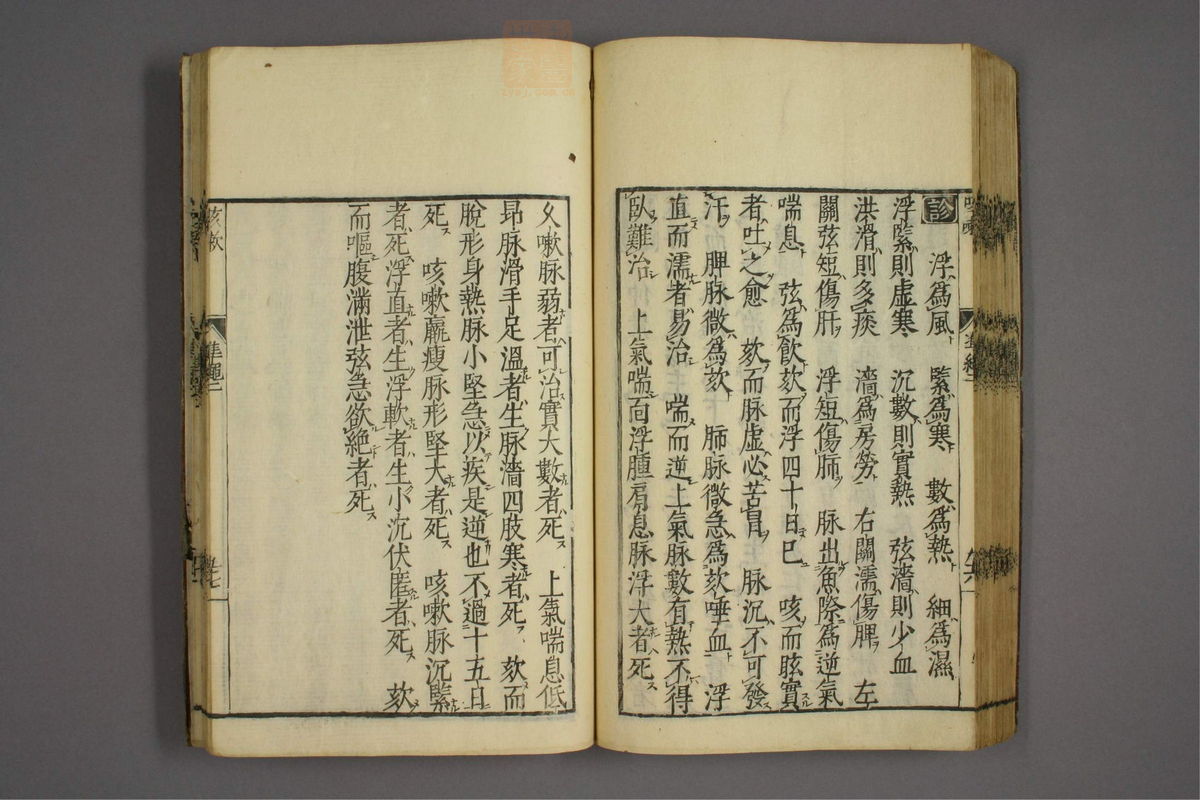 診 浮爲風 緊爲寒 數爲熱 細爲濕
浮緊則虛寒 沉數則實熱 弦濇則少血
洪滑則多痰 濇爲房勞 右關濡傷脾 左
關弦短傷肝 浮短傷肺 脈出魚際爲逆氣
喘息 弦爲飮欬而浮四十日已 咳而眩實
者吐之愈 欬而脈虛必苦冒 脈沉不可發
汗而 脾脈微爲欬 肺脈微急爲欬唾血 浮
直而濡者易治 喘而逆上氣脈數有熱不得
臥難治 上氣喘面浮腫肩息脈浮大者死
久嗽脈弱者可治實大數者死 上氣喘息低
昻脈滑手足溫者生脈濇四肢寒者死 欬而
脫形身熱脈小堅急以疾是逆也不過十五日
死 咳嗽羸瘦脈形堅大者死 咳嗽脈沉緊
者死浮直者生浮軟者生小沉伏匿者死 欬
而嘔腹滿泄弦急欲絕者死
咳嗽
準繩二